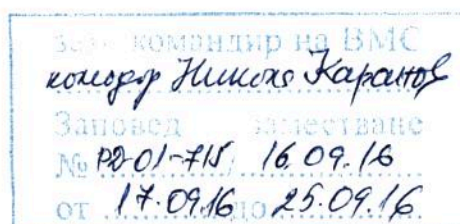 командир на ВМС
комодор Николе Каранов
Заповед заместване
№ РД-01-715/ 16.09.16
от 17.09.16 до 25.09.16